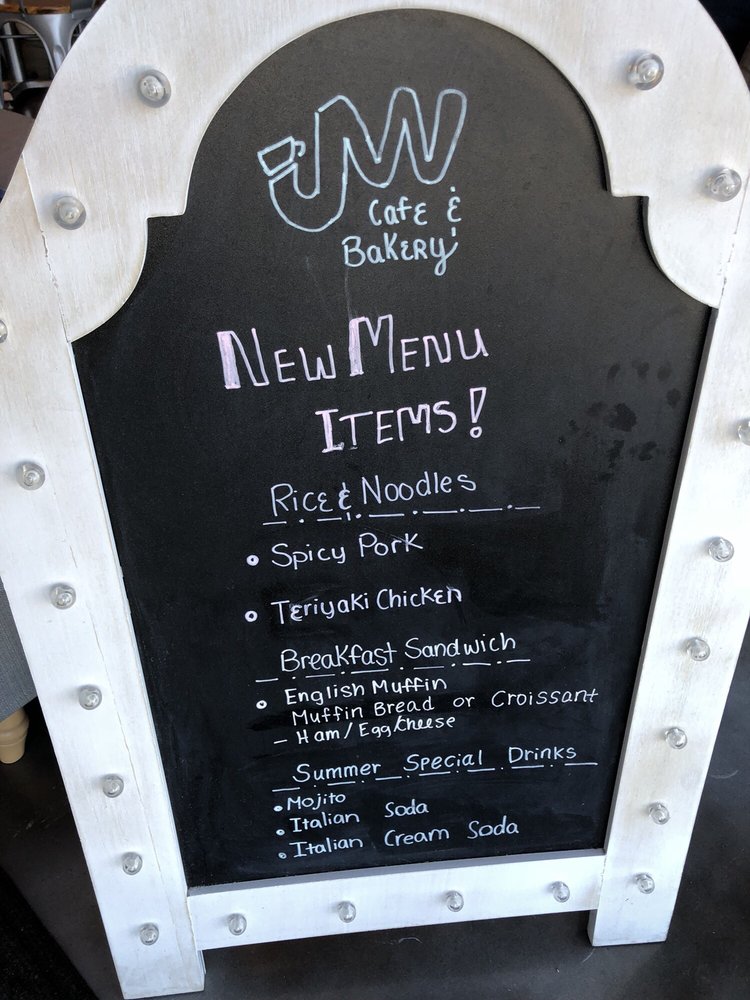 JW
Cafe &
Bakery
New Menu
Items!
Rice & Noodles
Spicy Pork
Teriyaki Chicken
Breakfast Sandwich
English Muffin
Muffin Bread or Croissant
- Ham/Egg/Cheese
Summer Special Drinks
Mojito
Italian Soda
Italian Cream Soda